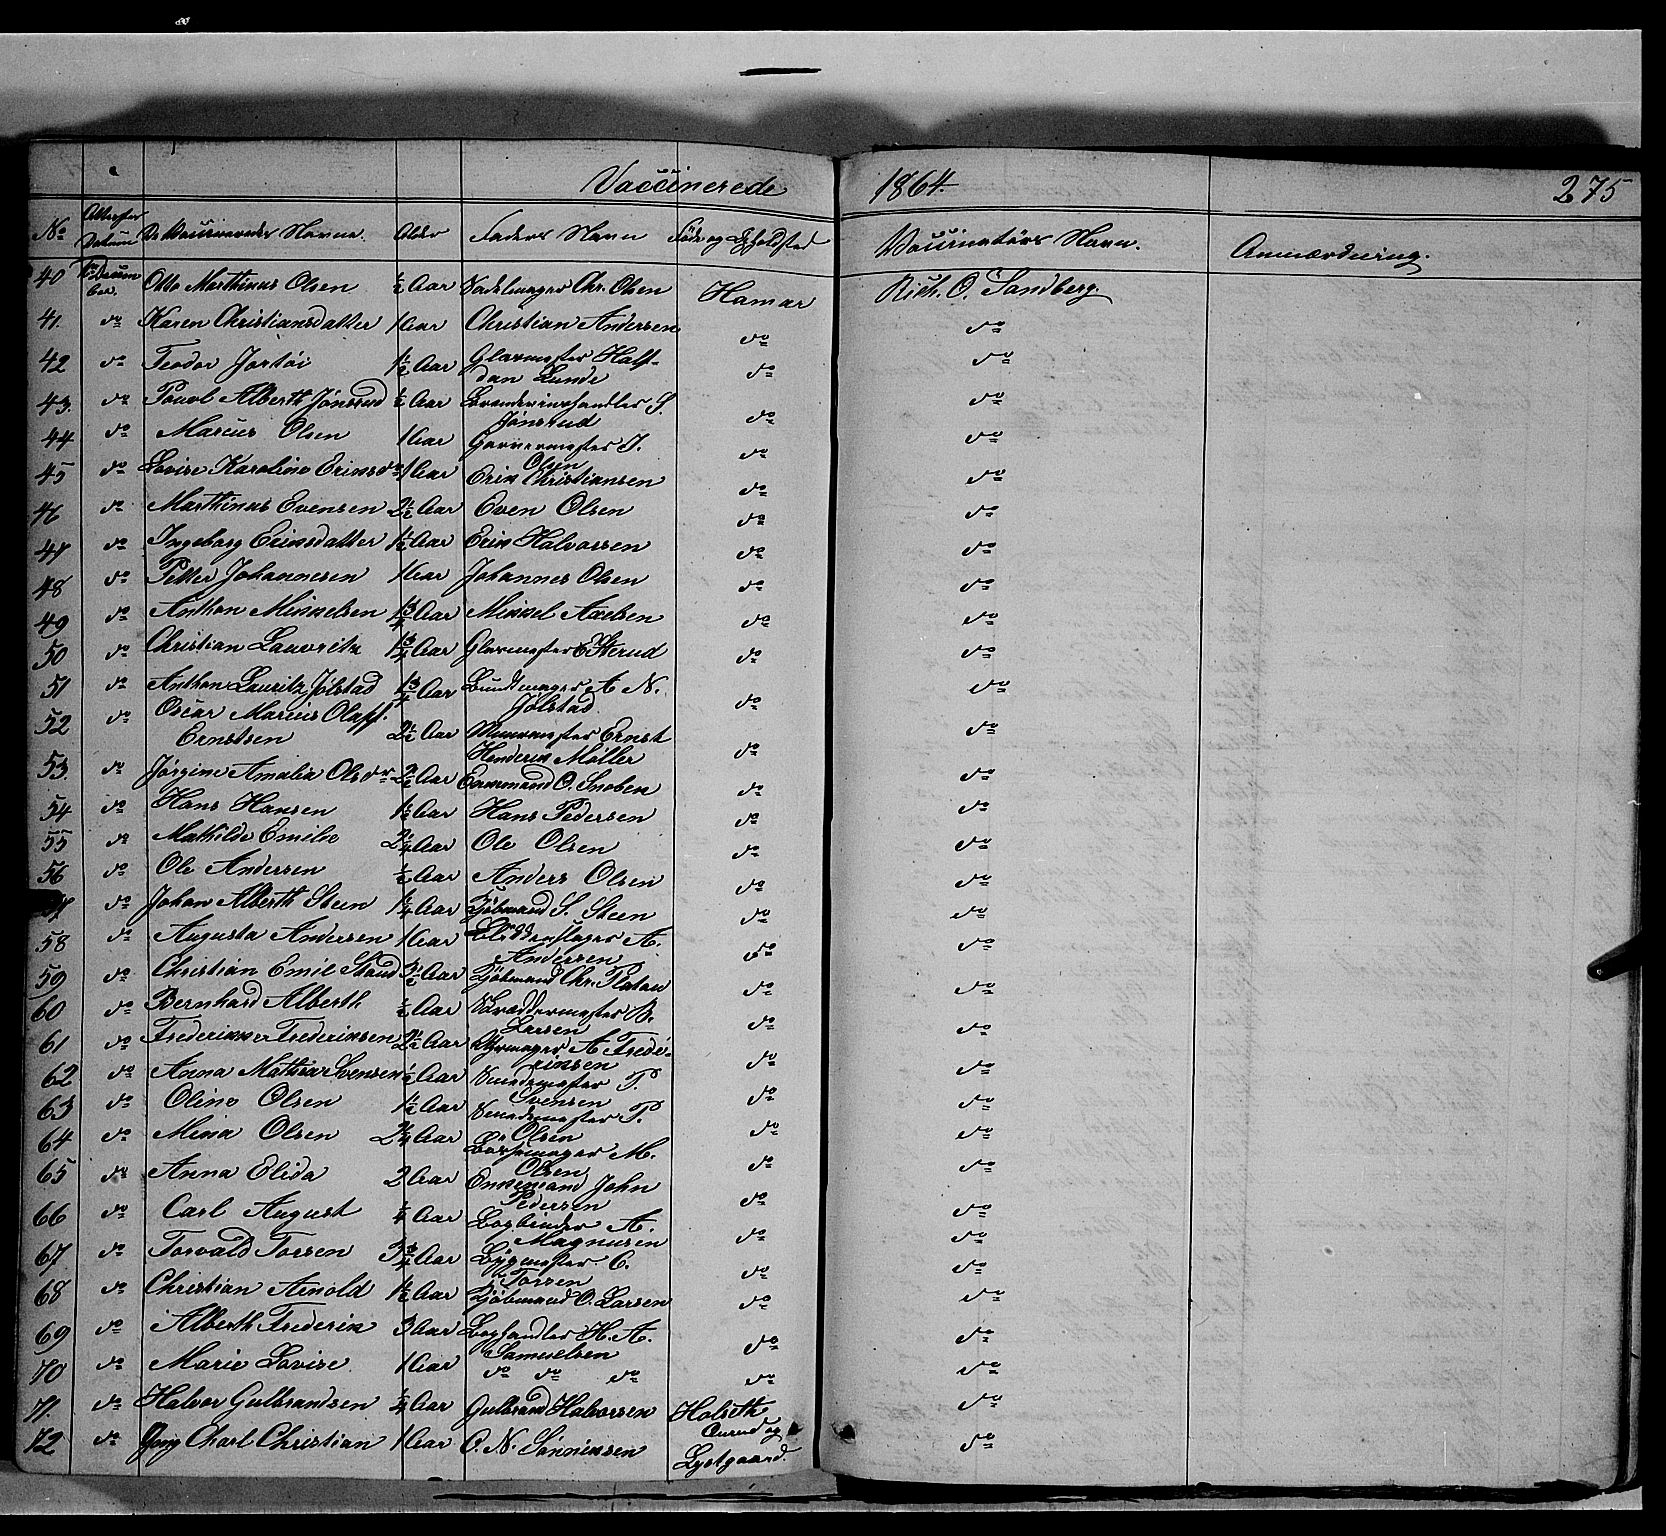 Vaccinerede 1864. 275
No Attester Datum De Vaccineredes Navne. Alder Faders Navn Føde og Opholdsted Vaccinatørs Navn. Anmærkning.
40 December. Otto Marthinus Olsen ½ Aar Sadelmager Chr. Olsen Hamar Rich. O. Sandberg.
41. do Karen Christiansdatter 1 Aar Christian Andersen do do
42 do Teodor 1½ Aar Glarmester Half-
dan Lunde do do
43. do Pouol Alberth Jønsrud ½ Aar Brændevinshandler S.
Jønsrud do do
44 do Marcus Olsen 1 Aar Garvermester J.
Olsen do do
45 do Lovise Karoline Eriksdr 1 Aar Erik Christiansen do do
46 do Marthinus Evensen 2½ Aar Even Olsen do do
47 do Ingeborg Eriksdatter 1½ Aar Erik Halvorsen do do
48 do Petter Johannesen 1 Aar Johannes Olsen do do
49 do Anthon Mikkelsen 1¾ Aar Mikkel Axelsen do do
50 do Christian Lauvritz 1¾ Aar Glarmester do do
51 do Anthon Lauritz Jølstad 1¾ Aar Bundtmager A. N.
Jølstad. do do
52 do Oscar Marcius Olaff.
Ernstsen 2½ Aar Muurmester Ernst
Henderik Møller do do
53. do Jørgine Amalia Olsdr Aar O. Snoben do do
54 do Hans Hansen 1½ Aar Hans Pedersen do do
55 do Mathilde Emilie 2¼ Aar Ole Olsen do do
56 do Ole Andersen ½ Aar Anders Olsen do do
57 do Johan Alberth Steen 1¼ Aar Kjøbmand S. Steen do do
58 do Augusta Andersen 1 Aar A.
Andersen do do
59 do Christian Emil 3½ Aar Kjøbmand Chr. Platou do do
60 do Bernhard Alberth ½ Aar Skræddermester B.
Larsen do do
61 do Frederikke Frederiksen 2½ Aar Uhrmager A. Frede-
riksen do do
62 do Anna Mathea Svensen ½ Aar Smedemester P.
Svensen do do
63 do Oline Olsen 1½ Aar Smedemester P.
Olsen do do
64 do Mina Olsen 2¼ Aar M.
Olsen do do
65 do Anna Elida 2 Aar Enkemand John
Pedersen do do
66 do Carl August ¼ Aar Bogbinder A.
Magnusen do do
67 do Torvald Torsen 3¾ Aar Bygmester C.
Torsen do do
68 do Christian Arnold 1½ Aar Kjøbmand O. Larsen do do
69 do Alberth Frederik 3 Aar Boghandler H. A.
Samuelsen do do
70 do Marie Lovise 1 Aar do do do do do
71. do Halvor Gulbrandsen ¾ Aar Gulbrand Halvorsen Holseth do
72 do Carl Christian 1 Aar O. N. Sønniksen Aurud og
Lystgaard. do